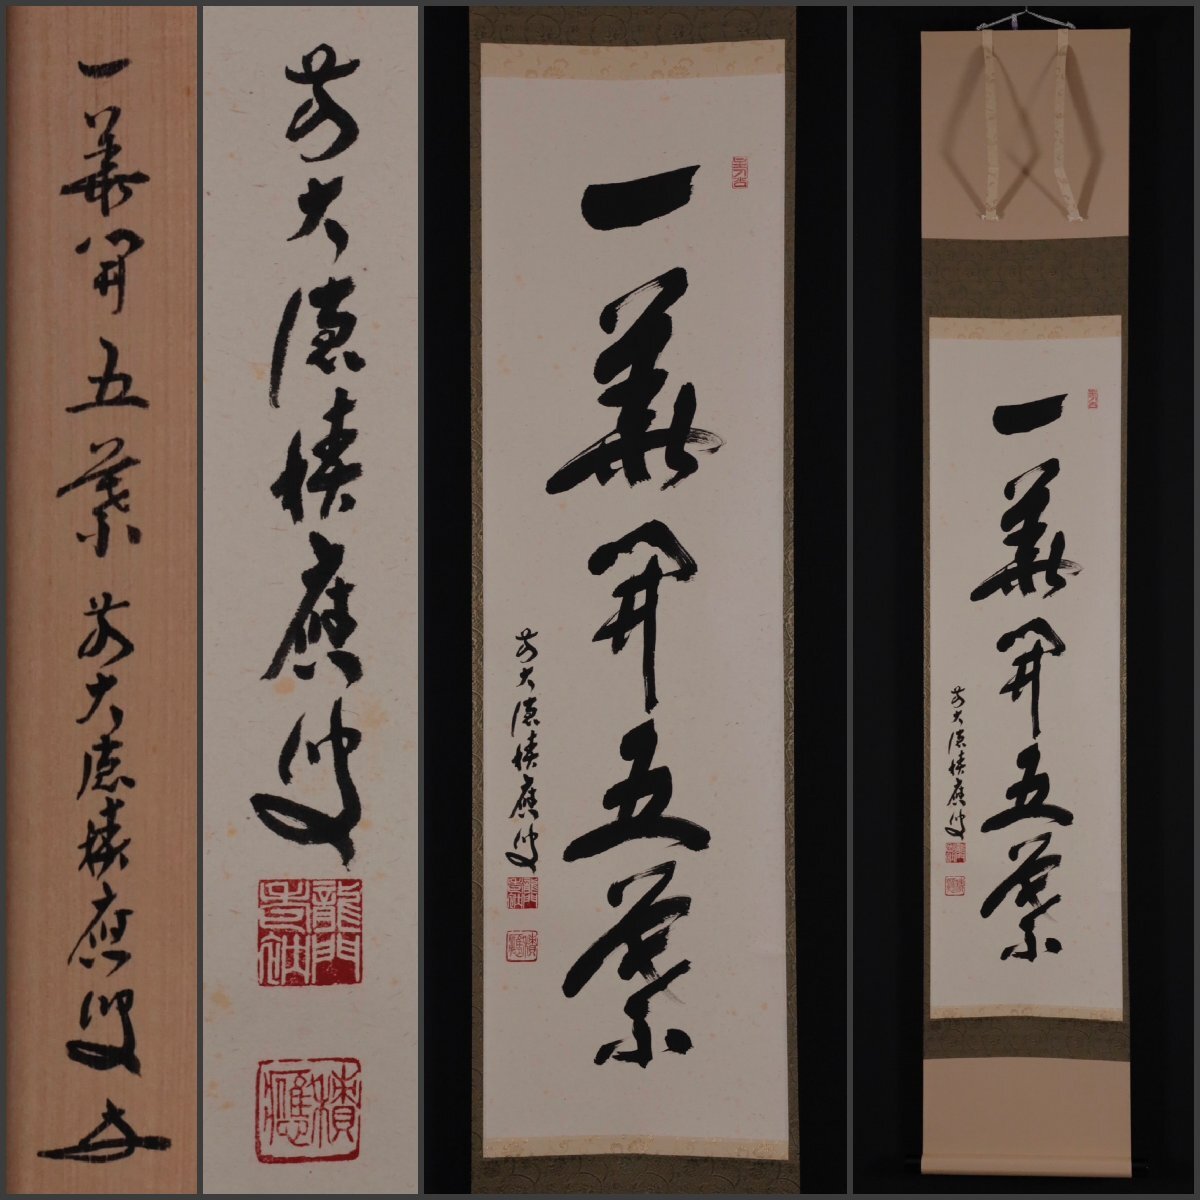 一華開五葉 前大徳積應叟 書
前大徳積應叟
龍門
積應
一華開五葉
前大徳積應叟
積應
一華開五葉
前大徳積應叟